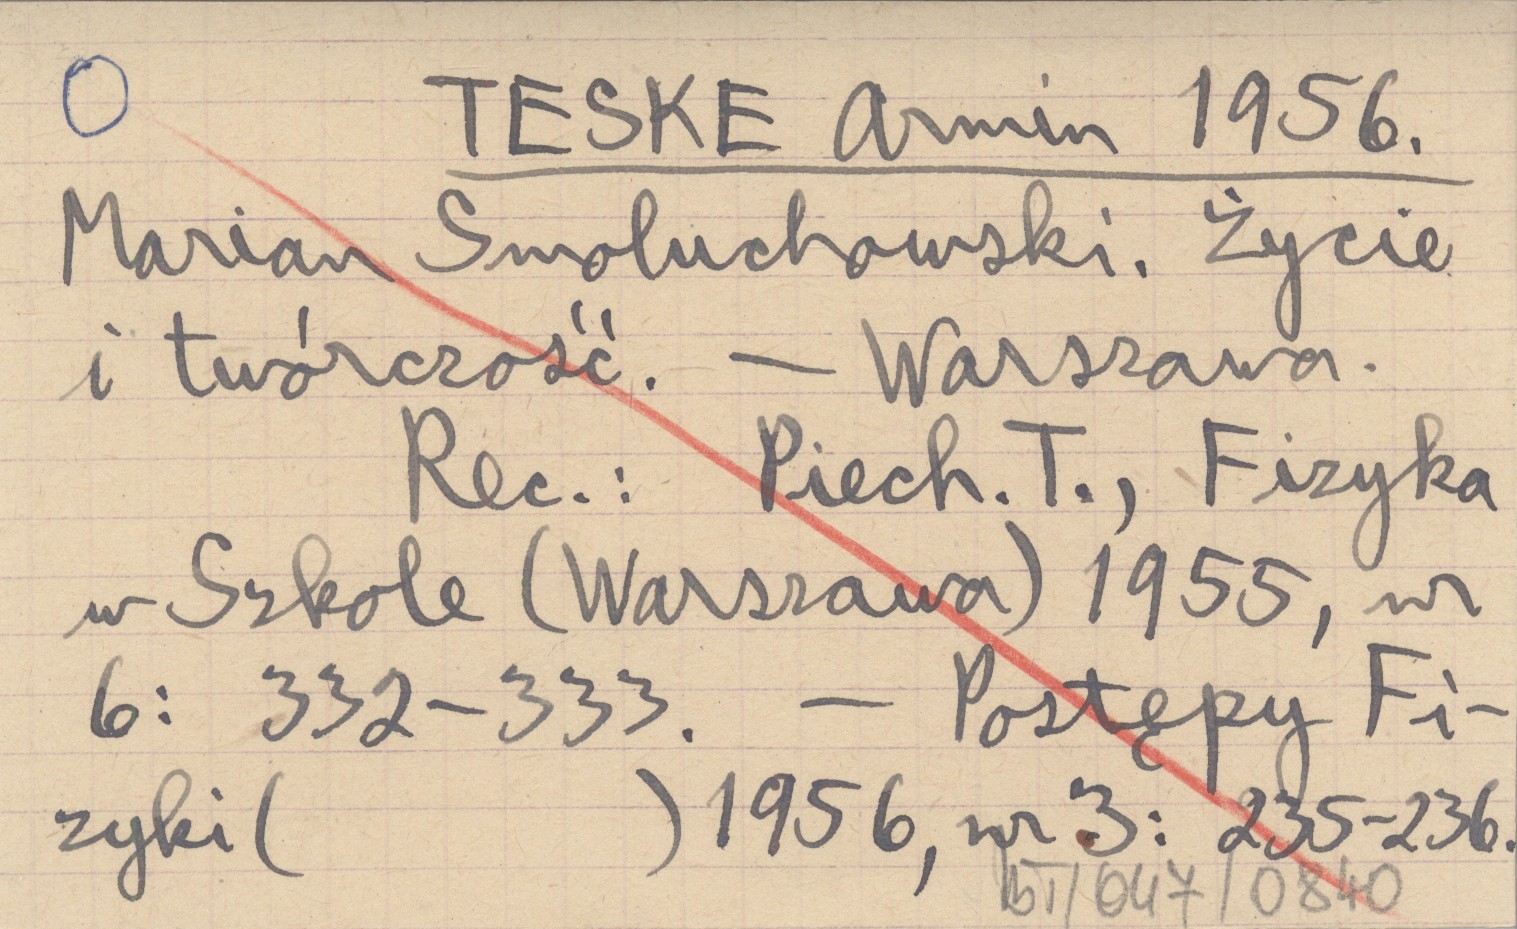 O TESKE Armin 1956.
Marian Smoluchowski. Życie
i twórczość. — Warszawa.
Rec.: Piech. T., Fizyka
w Szkole (Warszawa) 1955, nr
6: 332-333. — Postępy Fi-
zyki ( ) 1956, nr 3: 235-236.
bT/047/0840